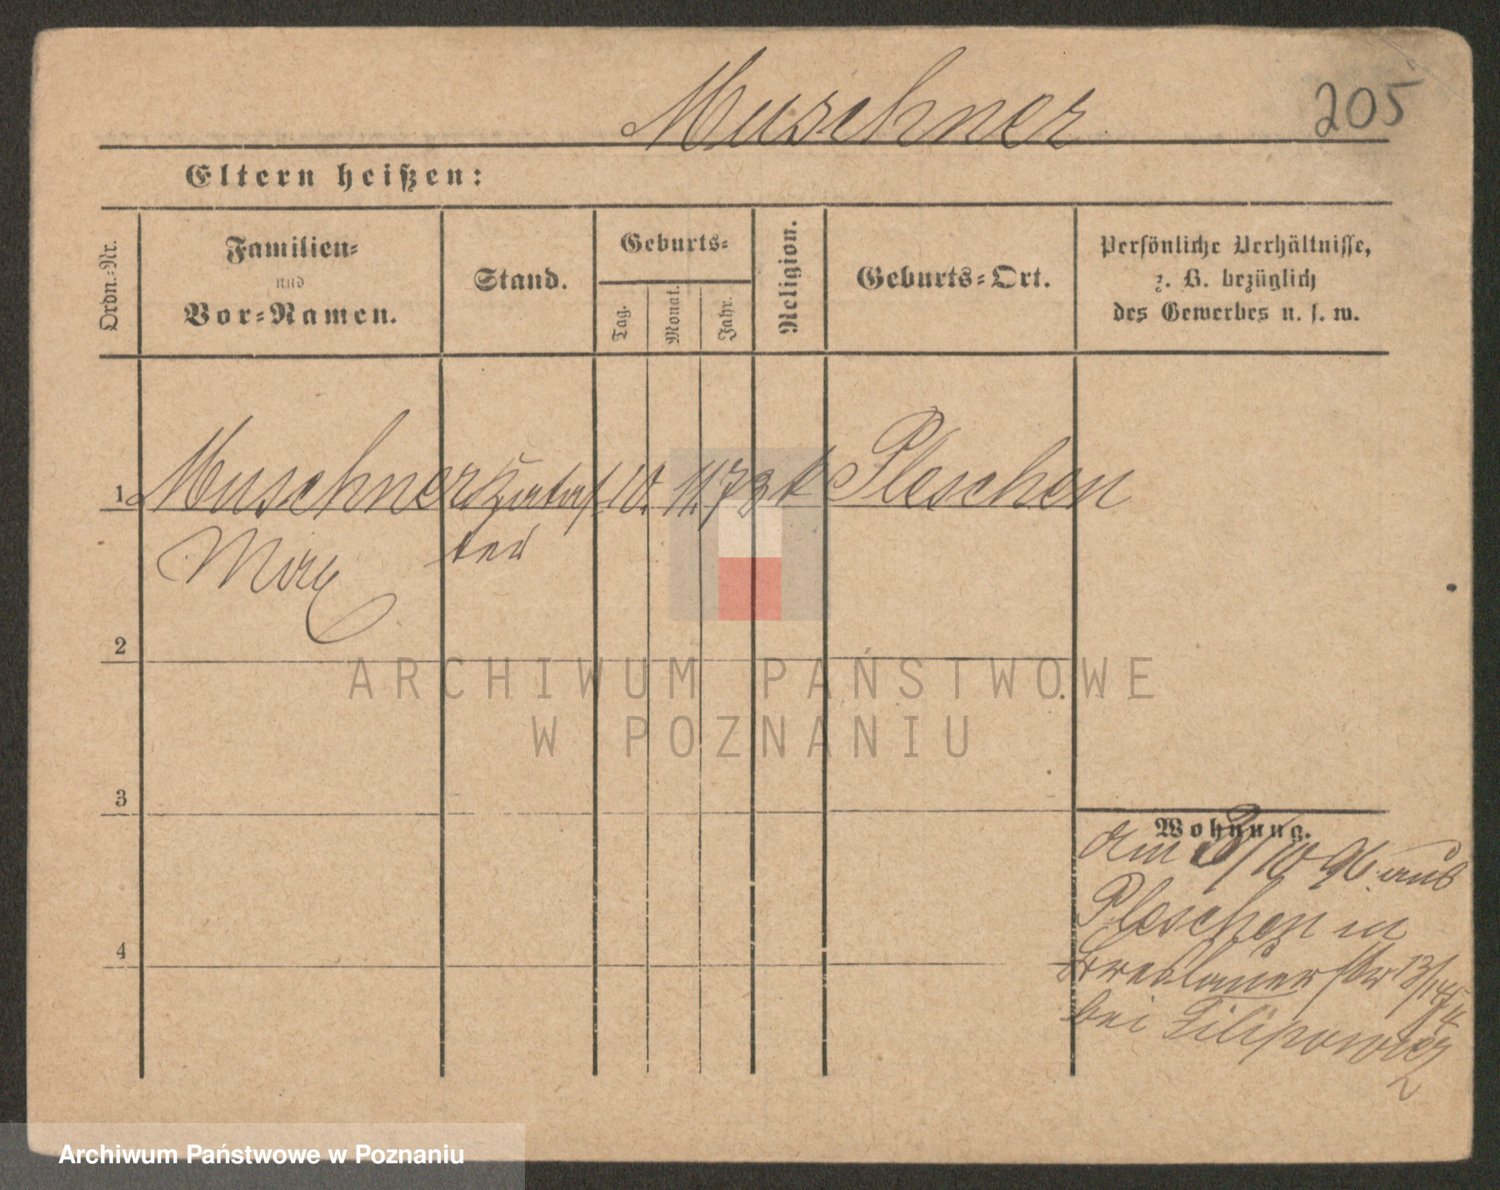 Muschner
205
Eltern heißen:
Ordn.-Nr.
Familien-
und
Vor-Namen.
Stand.
Geburts-
Tag.
Monat.
Jahr.
Religion.
Geburts-Ort.
Persönliche Verhältnisse,
z. B. bezüglich
des Gewerbes u. s. w.
1 Muschner 10. 11. 73 k Pleschen
Max
2
3
4
Wohnung.
am 3/10 96 aus
Pleschen in
Breslauerstr 13/14
bei
ARCHIWUM PAŃSTWOWE
W POZNANIU
Archiwum Państwowe w Poznaniu